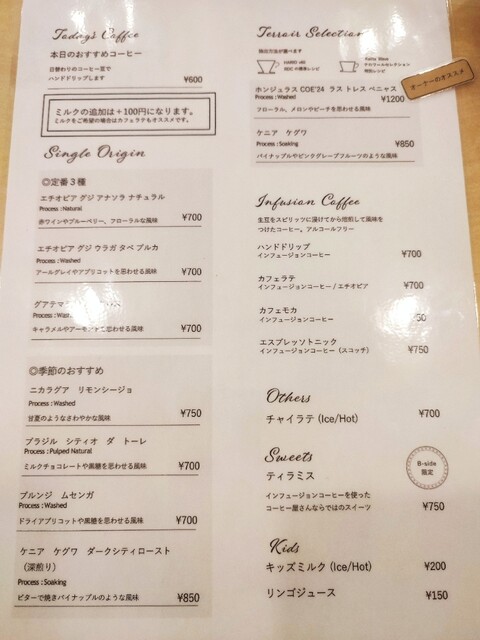 Today's Coffee
本日のおすすめコーヒー
日替わりのコーヒー豆で
ハンドドリップします
¥600
ミルクの追加は+100円になります。
ミルクをご希望の場合はカフェラテもオススメです。
Single Origin
◎定番3種
エチオピア グジ アナソラ ナチュラル
Process : Natural
赤ワインやブルーベリー、フローラルな風味
¥700
エチオピア グジ ウラガ タベ ブルカ
Process : Washed
アールグレイやアプリコットを思わせる風味
¥700
グアテマ
Process : Was
キャラメルやアーモンドを思わせる風味
¥700
◎季節のおすすめ
ニカラグア リモンシージョ
Process : Washed
甘夏のようなさわやかな風味
¥750
ブラジル シティオ ダ トーレ
Process : Pulped Natural
ミルクチョコレートや黒糖を思わせる風味
¥700
ブルンジ ムセンガ
Process : Washed
ドライアプリコットや黒糖を思わせる風味
¥700
ケニア ケグワ ダークシティロースト
(深煎り)
Process : Soaking
ビターで焼きパイナップルのような風味
¥850
Terroir Selection
抽出方法が選べます
オーナーのオススメ
ホンジュラス COE'24 ラス トレス ペニャス
Process : Washed
¥1200
フローラル、メロンやピーチを思わせる風味
ケニア ケグワ
Process : Soaking
¥850
パイナップルやピンクグレープフルーツのような風味
Infusion Coffee
生豆をスピリッツに漬けてから焙煎して風味を
つけたコーヒー。アルコールフリー
ハンドドリップ
インフュージョンコーヒー
¥700
カフェラテ
インフュージョンコーヒー / エチオピア
¥700
カフェモカ
インフュージョンコーヒー
50
エスプレッソトニック
インフュージョンコーヒー (スコッチ)
¥750
Others
チャイラテ (Ice/Hot)
¥700
Sweets
ティラミス
B-side
限定
インフュージョンコーヒーを使った
コーヒー屋さんならではのスイーツ
¥750
Kids
キッズミルク (Ice/Hot)
¥200
リンゴジュース
¥150